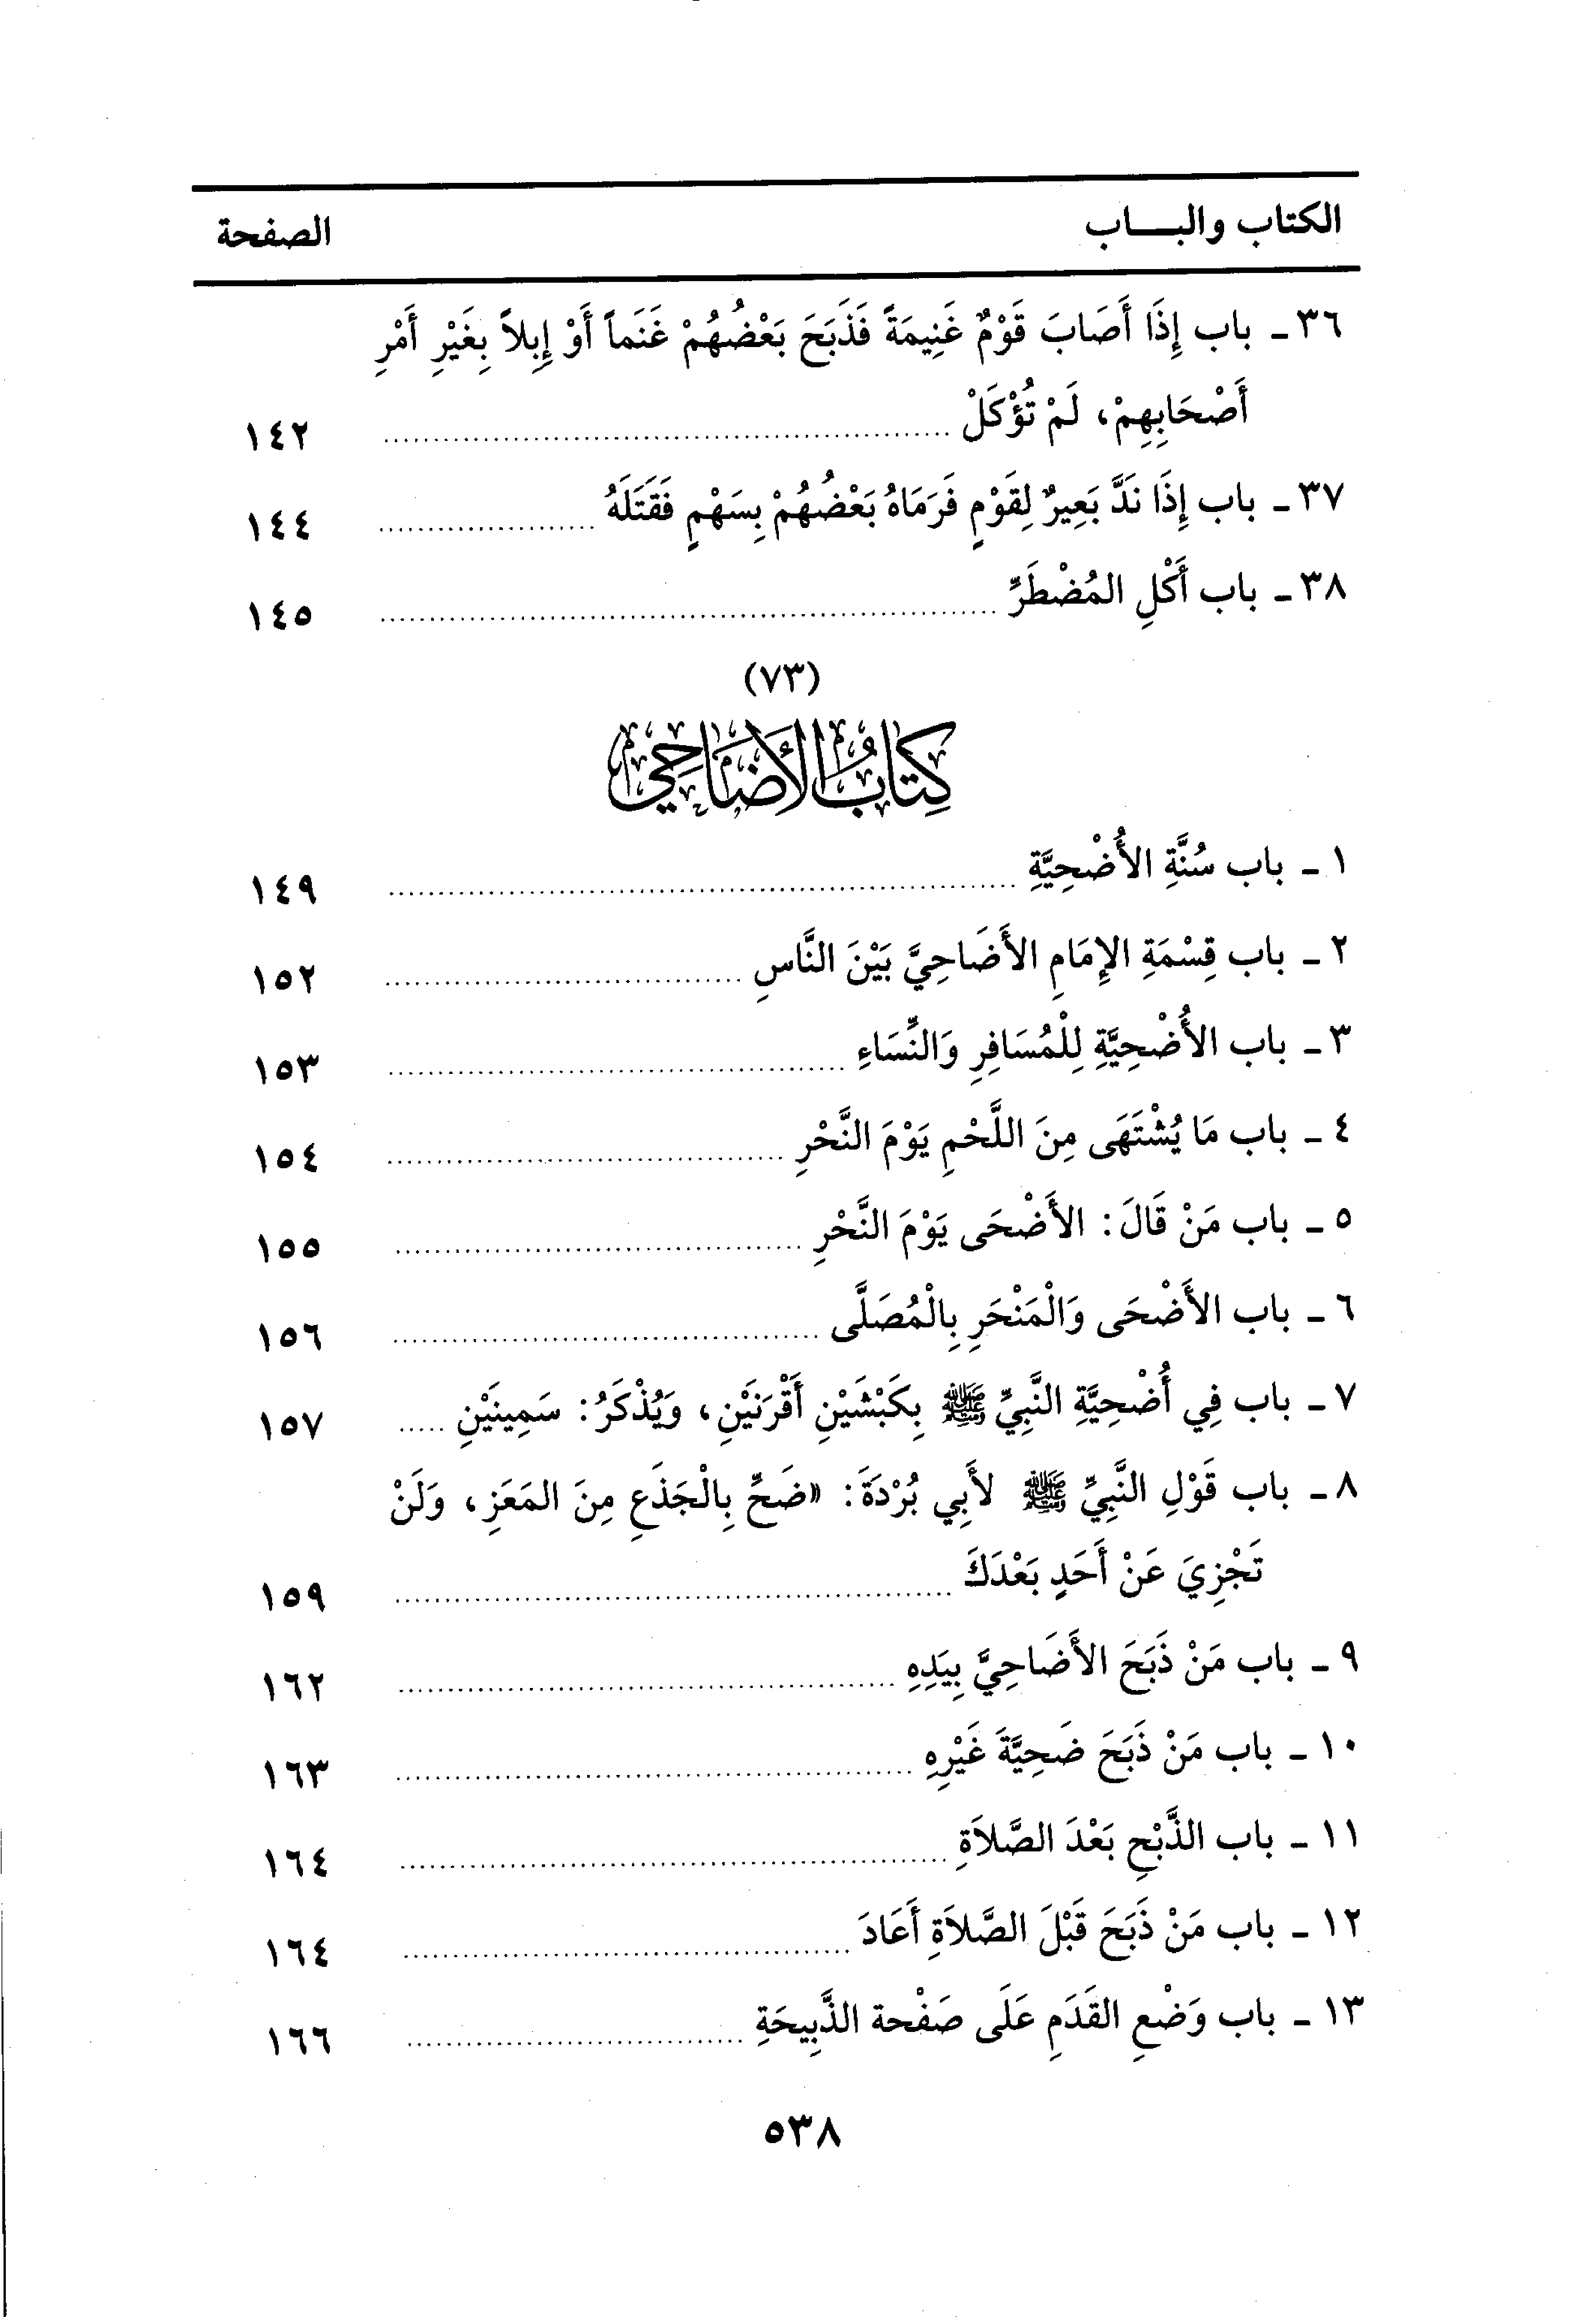 الكتاب والبـــاب الصفحة
٣٦ ـ باب إِذَا أَصَابَ قَوْمٌ غَنِيمَةً فَذَبَحَ بَعْضُهُمْ غَنَماً أَوْ إِبِلاً بِغَيْرِ أَمْرِ
أَصْحَابِهِمْ، لَمْ تُؤْكَلْ ........ ١٤٢
٣٧ ـ باب إِذَا نَدَّ بَعِيرٌ لِقَوْمٍ فَرَمَاهُ بَعْضُهُمْ بِسَهْمٍ فَقَتَلَهُ ........ ١٤٤
٣٨ ـ باب أَكْلِ المُضْطَرِّ ........ ١٤٥
(٧٣)
كِتَابُ الأَضَاحِي
١ ـ باب سُنَّةِ الأُضْحِيَّةِ ........ ١٤٩
٢ ـ باب قِسْمَةِ الإِمَامِ الأَضَاحِيَّ بَيْنَ النَّاسِ ........ ١٥٢
٣ ـ باب الأُضْحِيَّةِ لِلْمُسَافِرِ وَالنِّسَاءِ ........ ١٥٣
٤ ـ باب مَا يُشْتَهَى مِنَ اللَّحْمِ يَوْمَ النَّحْرِ ........ ١٥٤
٥ ـ باب مَنْ قَالَ: الأَضْحَى يَوْمَ النَّحْرِ ........ ١٥٥
٦ ـ باب الأَضْحَى وَالْمَنْحَرِ بِالْمُصَلَّى ........ ١٥٦
٧ ـ باب فِي أُضْحِيَّةِ النَّبِيِّ ﷺ بِكَبْشَيْنِ أَقْرَنَيْنِ، وَيُذْكَرُ: سَمِينَيْنِ ..... ١٥٧
٨ ـ باب قَوْلِ النَّبِيِّ ﷺ لأَبِي بُرْدَةَ: «ضَحِّ بِالْجَذَعِ مِنَ المَعَزِ، وَلَنْ
تَجْزِيَ عَنْ أَحَدٍ بَعْدَكَ ........ ١٥٩
٩ ـ باب مَنْ ذَبَحَ الأَضَاحِيَّ بِيَدِهِ ........ ١٦٢
١٠ ـ باب مَنْ ذَبَحَ ضَحِيَّةَ غَيْرِهِ ........ ١٦٣
١١ ـ باب الذَّبْحِ بَعْدَ الصَّلاَةِ ........ ١٦٤
١٢ ـ باب مَنْ ذَبَحَ قَبْلَ الصَّلاَةِ أَعَادَ ........ ١٦٤
١٣ ـ باب وَضْعِ القَدَمِ عَلَى صَفْحة الذَّبِيحَةِ ........ ١٦٦
٥٣٨